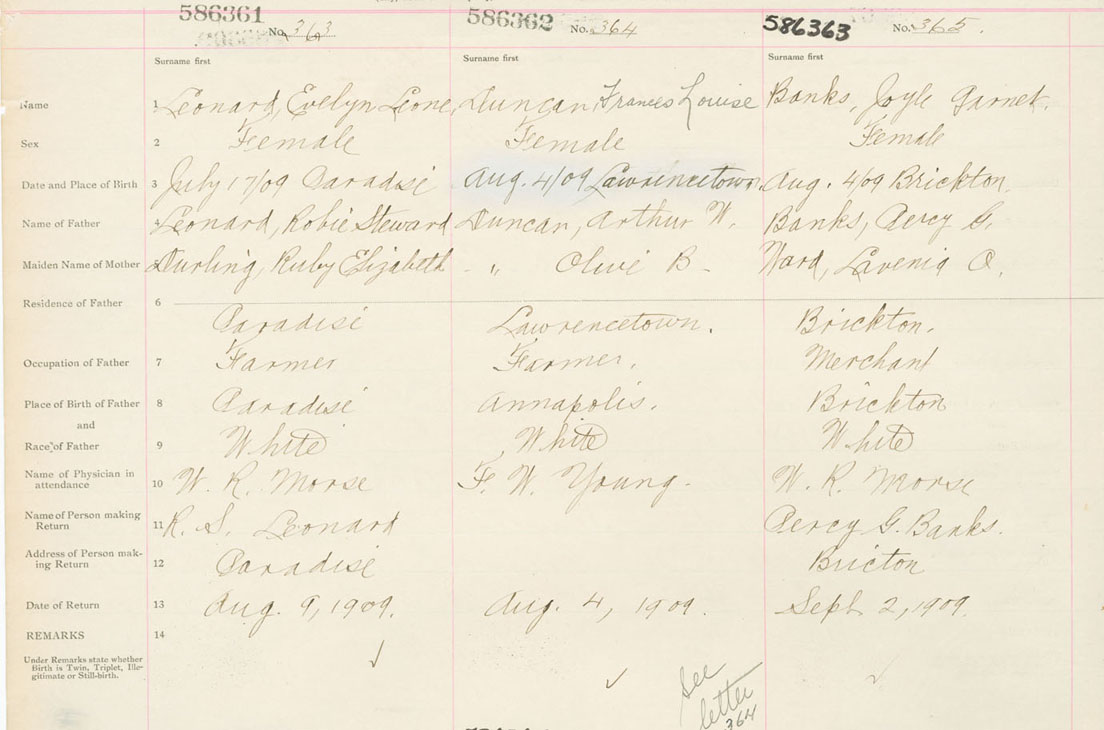 586361 586362 586363
No. 363 No. 364 No. 365.
Surname first Surname first Surname first
Name 1 Leonard, Evelyn Leone, Duncan, Frances Louise Banks, Joyle Garnet.
Sex 2 Female Female Female
Date and Place of Birth 3 July 17/09 Paradise Aug. 4/09 Lawrencetown. Aug. 4/09 Brickton.
Name of Father 4 Leonard, Robie Steward Duncan, Arthur W. Banks, Percy G.
Maiden Name of Mother Durling, Ruby Elizabeth - " Olive B - Ward, Lavenia O.
Residence of Father 6
Paradise Lawrencetown. Brickton.
Occupation of Father 7 Farmer Farmer. Merchant
Place of Birth of Father 8 Paradise Annapolis. Brickton
and
Race of Father 9 White White White
Name of Physician in
attendance 10 W. R. Morse F. W. Young. W. R. Morse
Name of Person making
Return 11 R. S. Leonard Percy G. Banks.
Address of Person mak-
ing Return 12 Paradise Bricton
Date of Return 13 Aug. 9, 1909. Aug. 4, 1909. Sept 2, 1909
REMARKS 14
Under Remarks state whether
Birth is Twin, Triplet, Ille-
gitimate or Still-birth.
See
letter
364